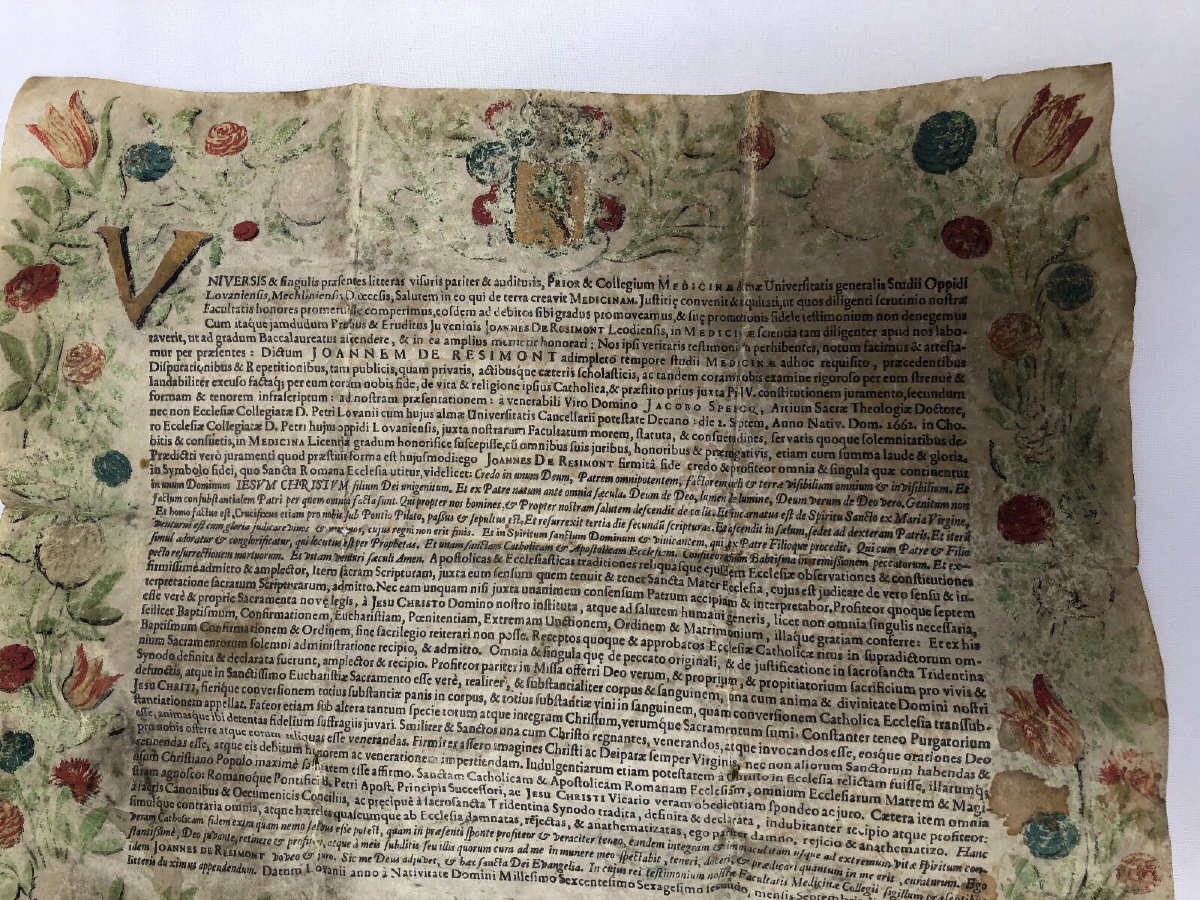 VNIVERSIS & singulis præsentes litteras visuris pariter & audituris, PRIOR & Collegium MEDICINÆ Universitatis generalis Studii Oppidi
Lovaniensis, Mechliniensis Diœcesis, Salutem in eo qui de terra creavit MEDICINAM. Justitię convenit & æquitati, ut quos diligenti scrutinio nostræ
Facultatis honores promeruisse comperimus, eosdem ad debitos sibi gradus promoveamus, & suę promotionis fidele testimonium non denegemus
Cum itaque jamdudum Probus & Eruditus Juvenis JOANNES DE RESIMONT Leodiensis, in MEDICINÆ scientia tam diligenter apud nos labo-
raverit, ut ad gradum Baccalaureatus ascendere, & in ea amplius meruerit honorari: Nos ipsi veritatis testimonium perhibentes, notum facimus & attesta-
mur per præsentes: Dictum JOANNEM DE RESIMONT adimpleto tempore studii MEDICINÆ adhoc requisito, præcedentibus
Disputationibus & Repetitionibus, tam publicis, quam privatis, actibusque cæteris scholasticis, ac tandem coram nobis examine rigoroso per eum strenuè &
laudabiliter excuso factaq; per eum coram nobis fide, de vita & religione ipsius Catholica, & præstito prius juxta Pij IV. constitutionem juramento, secundum
formam & tenorem infrascriptum: ad nostram præsentationem: à venerabili Viro Domino JACOBO SPEICQ, Artium Sacræ Theologiæ Doctore,
nec non Ecclesiæ Collegiatæ D. Petri Lovanii cum hujus almæ Universitatis Cancellarii potestate Decano: die 2. Septem, Anno Nativ. Dom. 1662. in Cho-
ro Ecclesiæ Collegiatæ D. Petri hujus oppidi Lovaniensis, juxta nostrarum Facultatum morem, statuta, & consuetudines, servatis quoque solemnitatibus de-
bitis & consuetis, in MEDICINA Licentiæ gradum honorifice suscepisse, cũ omnibus suis juribus, honoribus & prærogativis, etiam cum summa laude & gloria.
Prædicti verò juramenti quod præstitit forma est hujusmodi: ego JOANNES DE RESIMONT firmitâ fide credo & profiteor omnia & singula quæ continentur
in Symbolo fidei, quo Sancta Romana Ecclesia utitur, videlicet: Credo in unum Deum, Patrem omnipotentem, factorem cœli & terræ visibilium omnium & invisibilium. Et
in unum Dominum IESVM CHRISTVM filium Dei unigenitum. Et ex Patre natum ante omnia sæcula. Deum de Deo, lumen de lumine, Deum verum de Deo vero. Genitum non
factum consubstantialem Patri per quem omnia facta sunt. Qui propter nos homines, & Propter nostram salutem descendit de cœlis. Et incarnatus est de Spiritu Sancto ex Maria Virgine,
Et homo factus est, Crucifixus etiam pro nobis sub Pontio Pilato, passus & sepultus est, Et resurrexit tertia die secundũ scripturas. Et ascendit in cælum, sedet ad dexteram Patris, Et iterũ
venturus est cum gloria judicare vivos & mortuos, cujus regni non erit finis. Et in Spiritum sanctum Dominum & vivicantem, qui ex Patre Filioque procedit. Qui cum Patre & Filio
simul adoratur & conglorificatur, qui locutus est per Prophetas. Et unam sanctam Catholicam & Apostolicam Ecclesiam. Confiteor unum Baptisma in remissionem peccatorum. Et ex-
pecto resurrectionem mortuorum. Et vitam venturi sæculi Amen. Apostolicas & Ecclesiasticas traditiones reliquasque ejusdem Ecclesiæ observationes & constitutiones
firmissimè admitto & amplector, Item sacram Scripturam, juxta eum sensum quem tenuit & tenet Sancta Mater Ecclesia, cujus est judicare de vero sensu & in-
terpretatione sacratum Scripturarum, admitto. Nec eam unquam nisi juxta unanimem consensum Patrum accipiam & interpretabor, Profiteor quoque septem
esse verè & proprie Sacramenta novę legis, à JESU CHRISTO Domino nostro instituta, atque ad salutem humani generis, licet non omnia singulis necessaria,
scilicet Baptismum, Confirmationem, Eucharistiam, Pœnitentiam, Extremam Unctionem, Ordinem & Matrimonium, illaque gratiam conferre: Et ex his
Baptismum Confirmationem & Ordinem, sine sacrilegio reiterari non posse. Receptos quoque & approbatos Ecclesiæ Catholicæ ritus in supradictorum om-
nium Sacramentorum solemni administratione recipio, & admitto. Omnia & singula quę de peccato originali, & de justificatione in sacrosancta Tridentina
Synodo definita & declarata fuerunt, amplector & recipio. Profiteor pariter in Missa offerri Deo verum, & proprium, & propitiatorium sacrificium pro vivis &
defunctis, atque in Sanctissimo Eucharistiæ Sacramento esse verè, realiter, & substantialiter corpus & sanguinem, una cum anima & divinitate Domini nostri
JESU CHRISTI, fierique conversionem totius substantiæ panis in corpus, & totius substantiæ vini in sanguinem, quam conversionem Catholica Ecclesia transsub-
stantiationem appellat. Fateor etiam sub altera tantum specie totum atque integrum Christum, verumque Sacramentum sumi. Constanter teneo Purgatorium
esse, animasque ibi detentas fidelium suffragiis juvari. Similiter & Sanctos una cum Christo regnantes, venerandos, atque invocandos esse, eosque orationes Deo
pro nobis offerre atque eorum reliquas esse venerandas. Firmiter assero imagines Christi ac Deiparæ semper Virginis, nec non aliorum Sanctorum habendas &
retinendas esse, atque eis debitum honorem ac venerationem impertiendam, Indulgentiarum etiam potestatem à Christo in Ecclesia relictam fuisse, illarumq;
usum Christiano Populo maximè salutarem esse affirmo. Sanctam Catholicam & Apostolicam Romanam Ecclesiam, omnium Ecclesiarum Matrem & Magi-
stram agnosco: Romanoque Pontifici B. Petri Apost. Principis Successori, ac JESU CHRISTI Vicario veram obedientiam spondeo ac juro. Cætera item omnia
à sacris Canonibus & Oecumenicis Conciliis, ac pręcipuè à sacrosancta Tridentina Synodo tradita, definita & declarata, indubitanter recipio atque profiteor:
simulque contraria omnia, atque hæreses quascumque ab Ecclesia damnatas, rejectas, & anathematizatas, ego pariter damno, rejicio & anathematizo. Hanc
veram Catholicam fidem extra quam nemo salvus esse potest, quam in præsenti sponte profiteor & veraciter teneo, eandem integram & immaculatam usque ad extremum vitæ spiritum con-
stantissimè, Deo juvante, retinere & profiteri, atque à meis subditis seu illis quorum cura ad me in munere meo spectabit, teneri, doceri, & prædicari quantum in me erit, curaturum. Ego
idem JOANNES DE RESIMONT voveo & juro. Sic me Deus adjuvet, & hæc sancta Dei Evangelia. In cujus rei testimonium nostræ Facultatis Medicinæ Collegii sigillum præsentibus
litteris duximus appendendum. Datum Lovanii anno à Nativitate Domini Millesimo Sexcentesimo Sexagesimo secundo, mensis Septembris